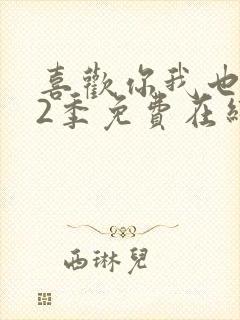 喜歡你我也
2季免費在線
西琳兒